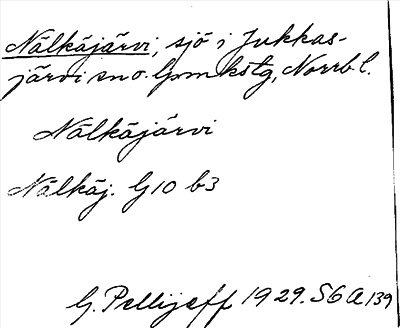 Nälkäjärvi, sjö i Jukkas-
järvi sn o. lpmkstg, Norrb l.
Nälkäjärvi
Nälkäj. G10 b3
G. Pellijeff 1929. S6A 139